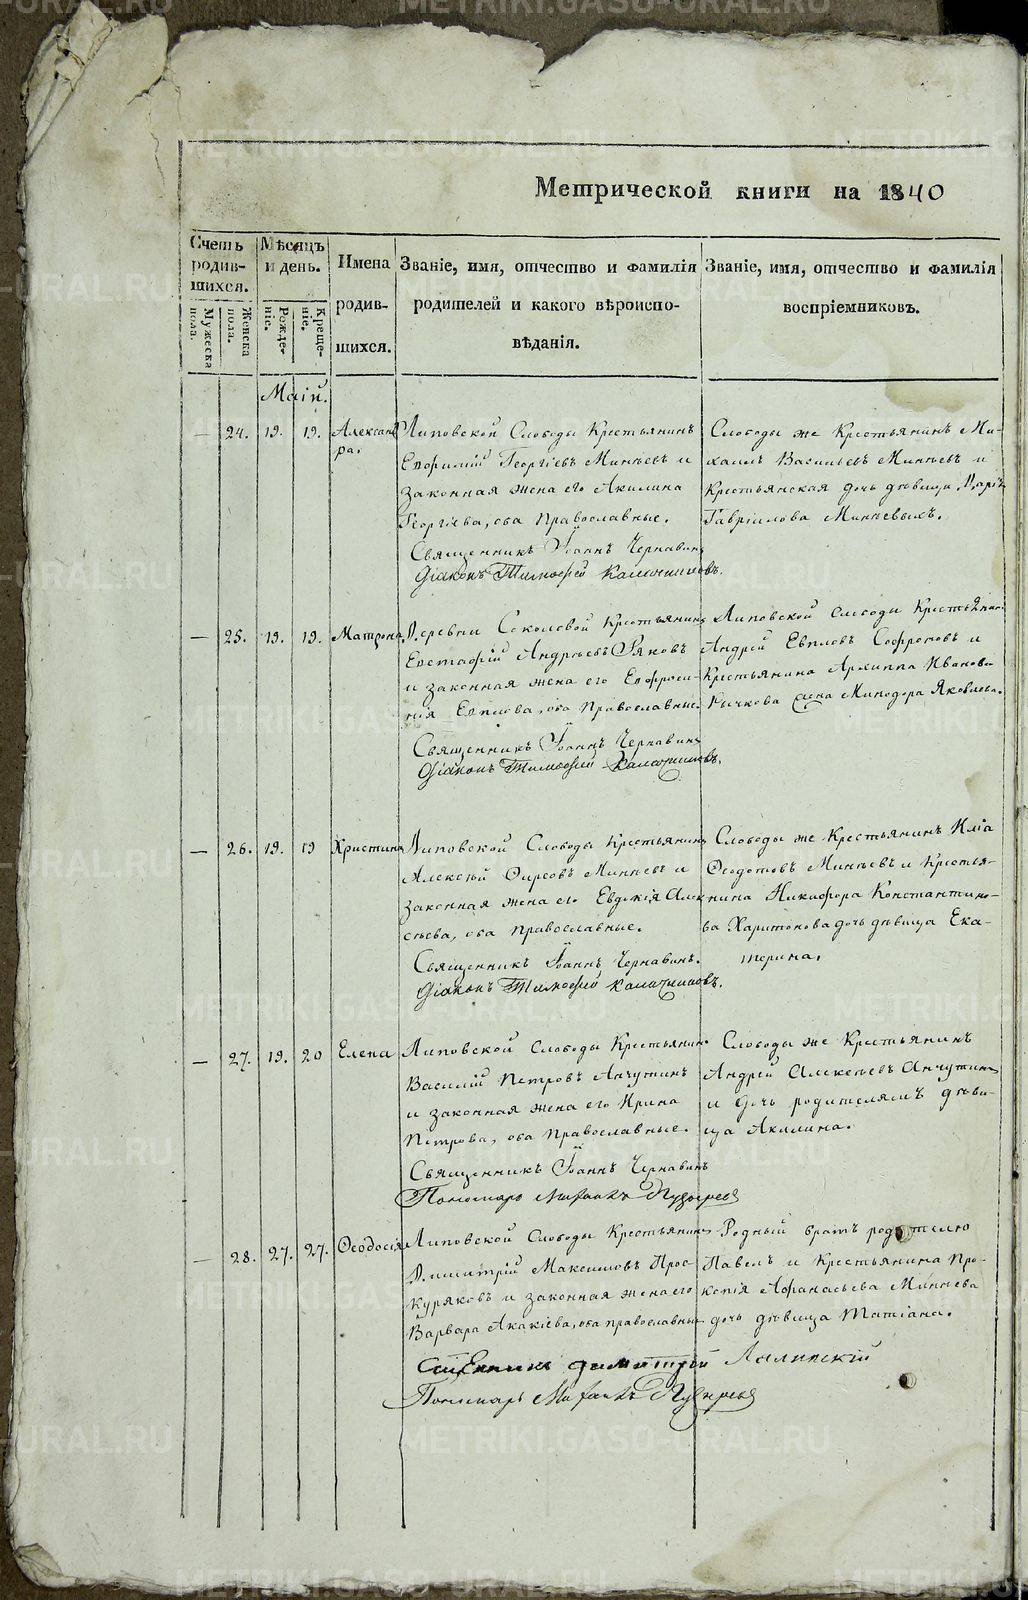 Метрической книги на 1840
Счетъ родив-шихся.
Мужеска пола.
Женска пола.
Мѣсяцъ и день.
Рожде-ніе.
Креще-ніе.
Имена родив-шихся.
Званіе, имя, отчество и фамилія родителей и какого вѣроиспо-вѣданія.
Званіе, имя, отчество и фамилія воспріемниковъ.
Маій.
— 24. 19. 19. Александ-
ра.
Липовской Слободы Крестьянинъ
Георгіевъ Минѣевъ и
законная жена его Акилина
Георгіева, оба Православные.
Слободы же Крестьянинъ Ми-
хаилъ Васильевъ Минѣевъ и
Крестьянская дочь дѣвица Марія
Гавріилова Минѣевыхъ.
Священникъ Іоаннъ Чернавинъ
Діаконъ Тимофей
— 25. 19. 19. Матрона
Деревни Соколовой Крестьянинъ
Евстафій Андреевъ Ряковъ
и законная жена его Евфроси-
нія Евплова, оба Православные.
Липовской слободы Крестьянинъ
Андрей Евпловъ Софроновъ и
Крестьянина Архиппа Иванова
Рычкова жена Минодора Яковлева.
Священникъ Іоаннъ Чернавинъ
Діаконъ Тимофей
— 26. 19. 19 Христина
Липовской Слободы Крестьянинъ
Алексѣй Минѣевъ и
законная жена его Евдокія Алек-
сѣева, оба православные.
Слободы же Крестьянинъ Иліа
Ѳеодотовъ Минѣевъ и Крестья-
нина Никифора Константино-
ва Харитонова дочь дѣвица Ека-
терина.
Священникъ Іоаннъ Чернавинъ.
Діаконъ Тимофей
— 27. 19. 20 Елена
Липовской слободы Крестьянинъ
Василій Петровъ Анчутинъ
и законная жена его Ирина
Петрова, оба Православные.
Слободы же Крестьянинъ
Андрей Алексѣевъ Анчутинъ
и дочь родителямъ дѣви-
ца Акилина.
Священникъ Іоаннъ Чернавинъ
Пономарь
— 28. 27. 27. Ѳеодосія
Липовской Слободы Крестьянинъ
Димитрій Максимовъ Прос-
куряковъ и законная жена его
Варвара Акакіева, оба православные
Родный братъ родителю
Павелъ и Крестьянина Про-
копія Афанасьева Минѣева
дочь дѣвица Татіана.
Священникъ Димитрій
Пономарь
METRIKI.GASO-URAL.RU